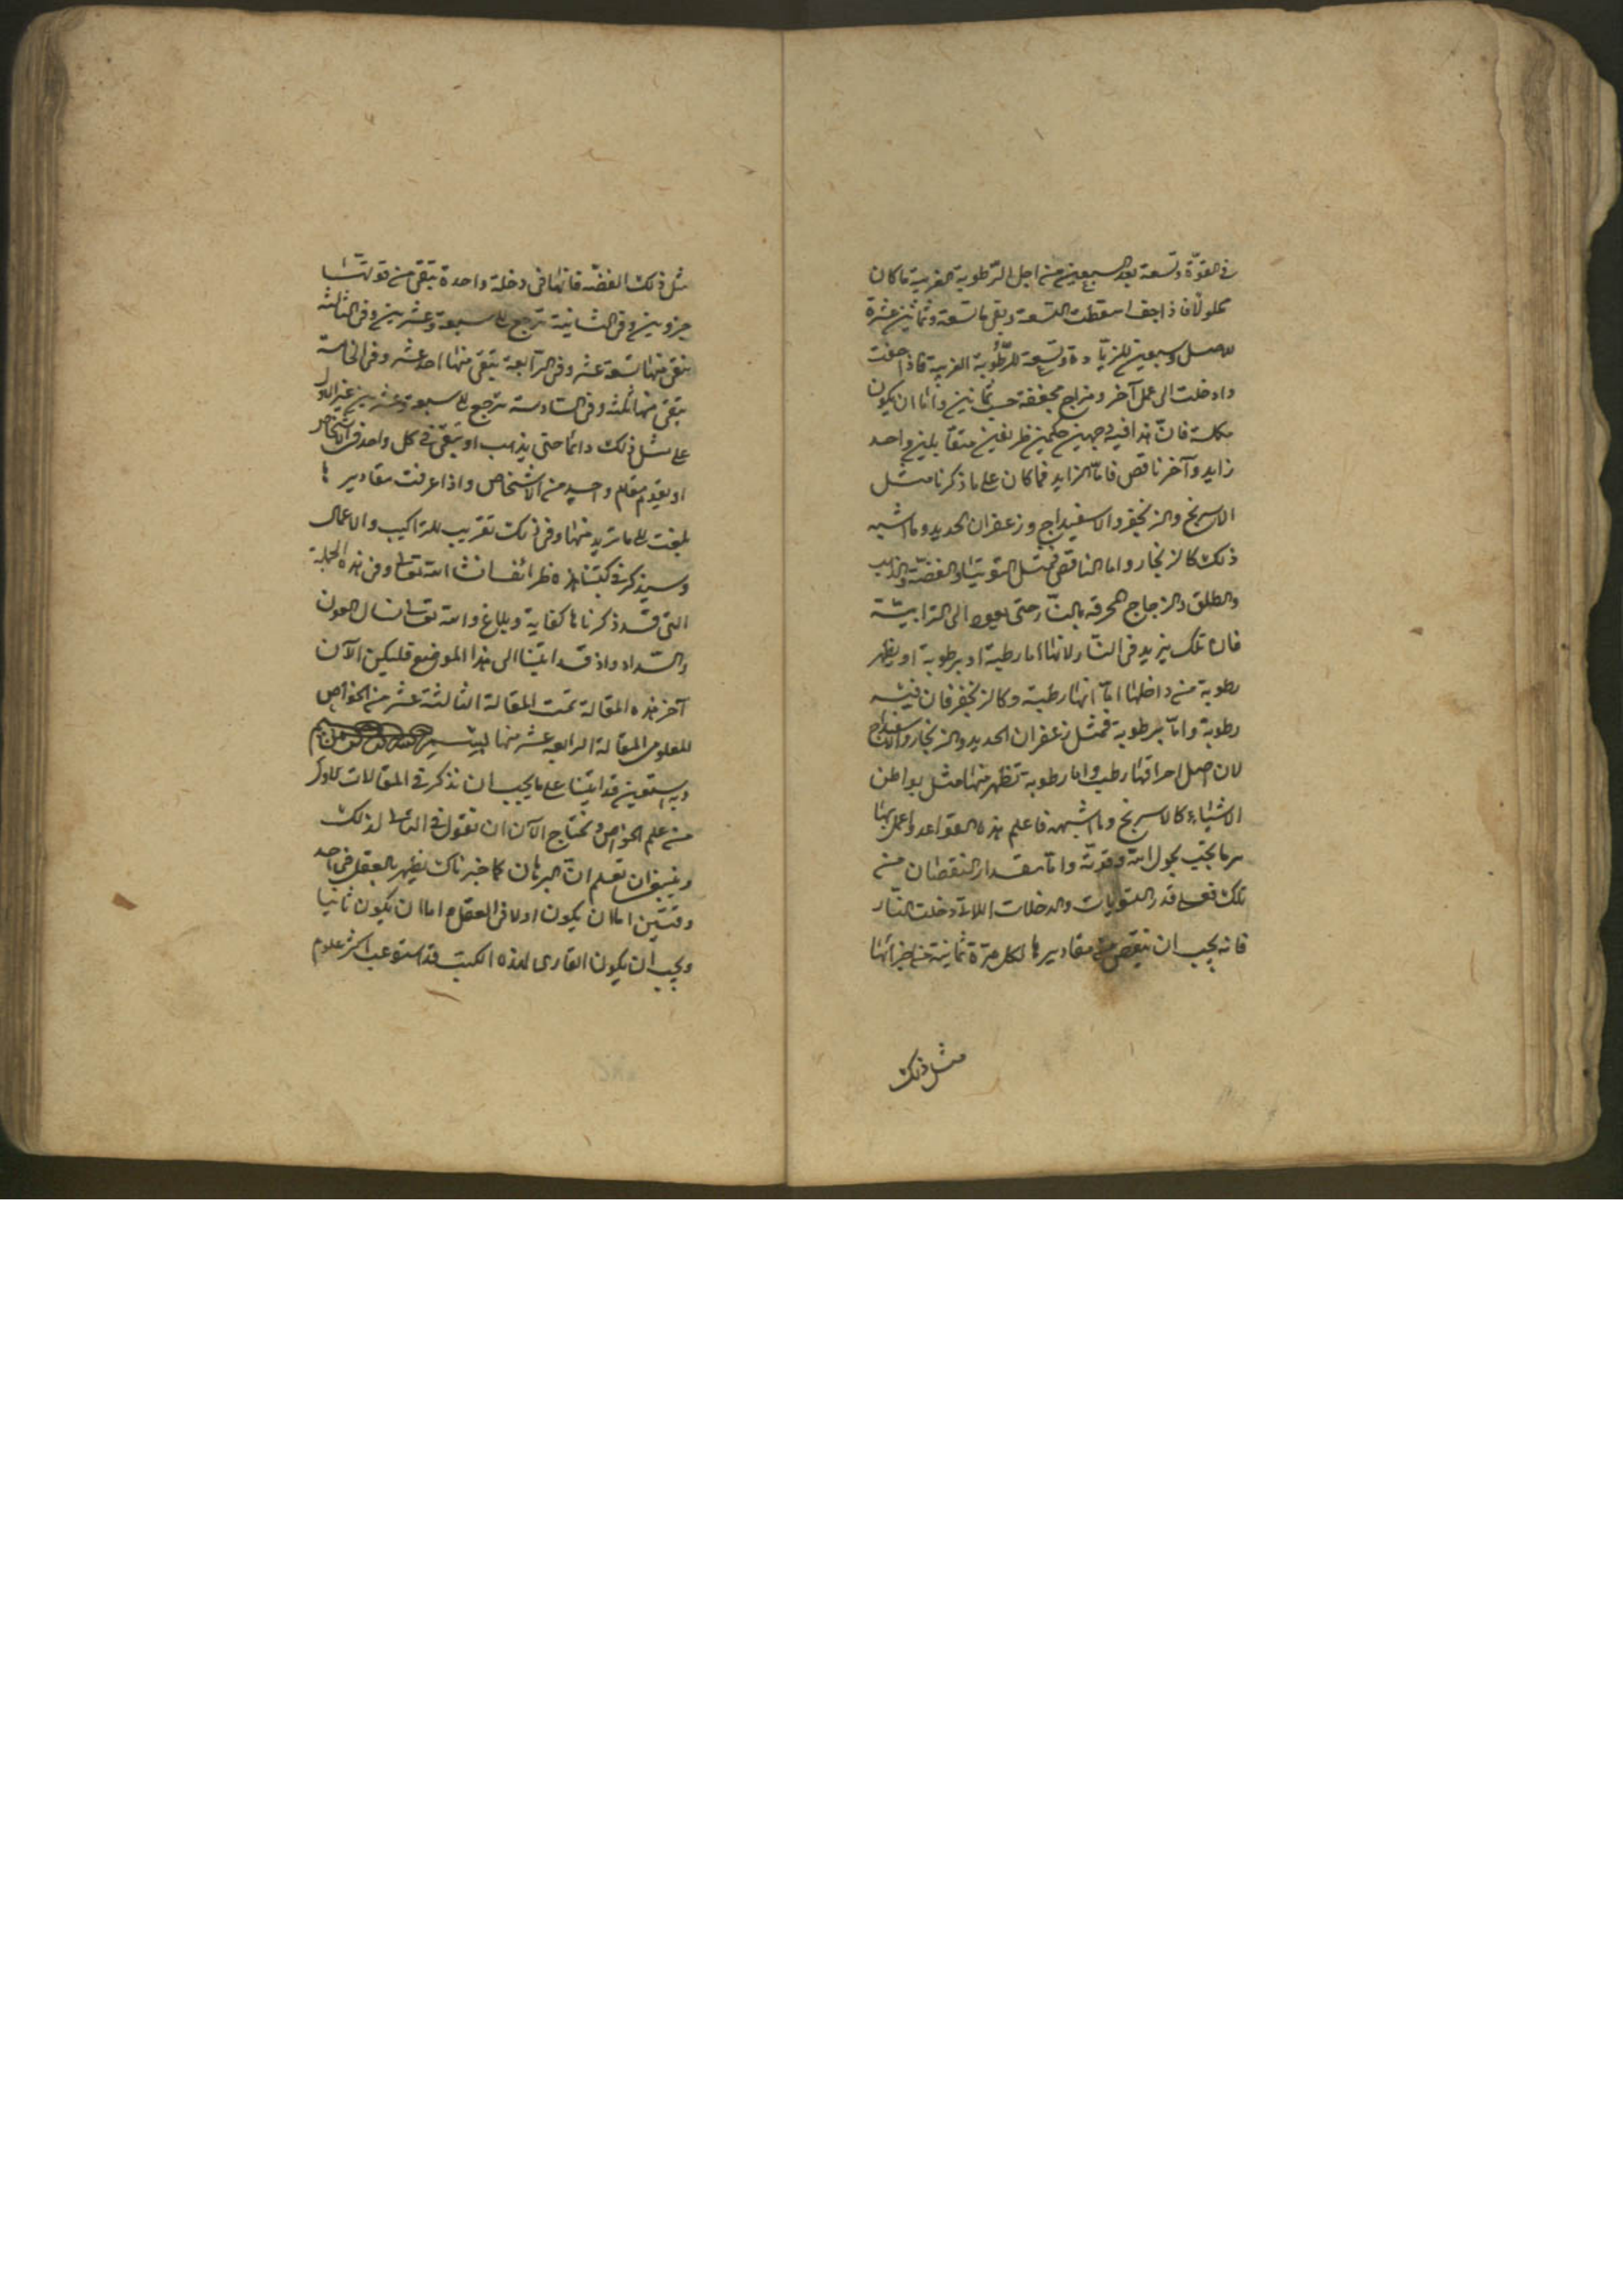 في القوة وتسعة بعد السبعين من اجل الرطوبة الغريبة ما كان
محلولا فاذا جف اسقطت التسعة وبقى ما تسعة وثمانين عشرة
للاصل وسبعين للزيادة وتسعة للرطوبة الغريبة فاذا جفت
وادخلت الى عمل آخر ومزاج مجففة حسب ثمانين واما ان يكون
مكلسة فان هذا فيه وجهين حكمين ظريفين متقابلين واحد
زايد وآخر ناقص فاما الزايد فما كان على ما ذكرنا مثل
الاسرنج والزنجفر والاسفيداج وزعفران الحديد وما اشبه
ذلك كالزنجار واما الناقص فمثل التوتيا والفضة والذهب
والطلق والزجاج المحرقه بالنار حتى يعود الى الترابية
فان تلك يزيد في النار لانها اما رطبة او برطوبة او يظهر
رطوبة من داخلها اما انها رطبة وكالزنجفر فان فيه
رطوبة واما برطوبة فمثل زعفران الحديد والزنجار والاسفيداج
لان اصل احراقها رطب واما رطوبة تظهر منها مثل بواطن
الاشياء كالاسرنج وما اشبهه فاعلم هذه القواعد واعمل بها
سر ما يجب بحول الله وقوته واما مقدار النقصان من
تلك فعلى قدر التشويات والدخلات اللاتي دخلت النار
فانه يجب ان ينقص من مقاديرها لكل مرة ثمانية من اجزائها
مثل ذلك
مثل ذلك الفضه فانها في دخلة واحدة يبقى من قوتها
جزوين وفي الثانية ترجع الى سبعة وعشرين وفي الثالثة
يبقى منها تسعة عشر وفي الرابعة يبقى منها احد عشر وفي الخامسة
يبقى منها ثلثه وفي السادسة ترجع الى سبعة وعشرين غير الاول
على مثل ذلك دائما حتى يذهب او يبقى في كل واحد من الاشخاص
او يقوم مقام واحد من الاشخاص واذا عرفت مقاديرها
بلغت الى ما تريد منها وفي ذلك تقريب للتراكيب والاعمال
وسيذكر في كتبنا هذه ظرائف ان شا الله تعالى وفي هذه الجملة
التي قد ذكرناها كفاية وبلاغ والله تعالى نسال العون
والسداد واذ قد اتينا الى هذا الموضع فليكن الآن
آخر هذه المقالة تمت المقالة الثالثة عشر من الخواص
للمعلومى المقالة الرابعه عشر منها
وبه نستعين قد اتينا على ما يجب ان نذكر في المقالات الاول
من علم الخواص ونحتاج الآن ان نقول في التالى لذلك
وينبغي ان تعلم ان البرهان كما خبرناك يظهر بالعقل في احد
وقتين اما ان يكون اولا في العقل واما ان يكون ثانيا
ويجب ان يكون القارى لهذه الكتب قد استوعب اكثر علوم